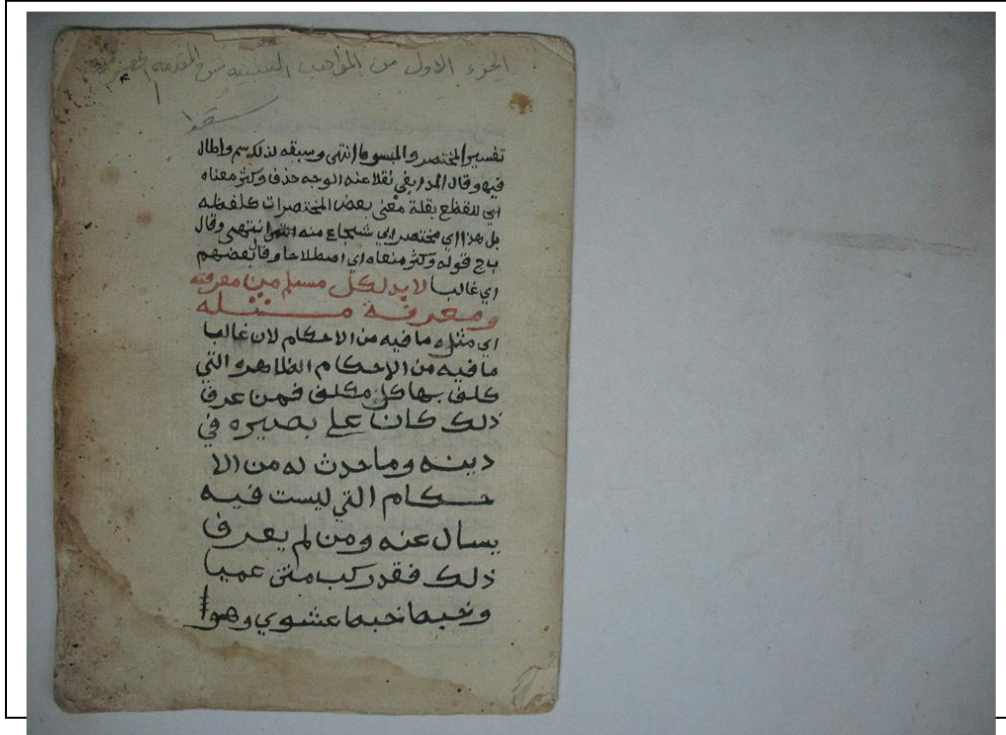 الجزء الاول من المواهب السنيه شرح المقدمه
تفسير المختصر والمبسوط انتهى وسبقه لذلك سم واطال
فيه وقال المدابغي نقلا عنه الوجه حذف وكثر معناه
اي للقطع بقلة معنى بعض المختصرات كلفظه
بل هذا اي مختصر ابي شجاع منه انتهى وقال
باج قوله وكثر معناه اي اصطلاحا وقال بعضهم
اي غالبا لا بد لكل مسلم من معرفته
ومعرفة مثله
اي مثل ما فيه من الاحكام لان غالبا
ما فيه من الاحكام الظاهره التي
كلف بها كل مكلف فمن عرف
ذلك كان على بصيره في
دينه وما حدث له من الا
حكام التي ليست فيه
يسال عنه ومن لم يعرف
ذلك فقد ركب متن عميا
وخبط خبط عشوي وهو